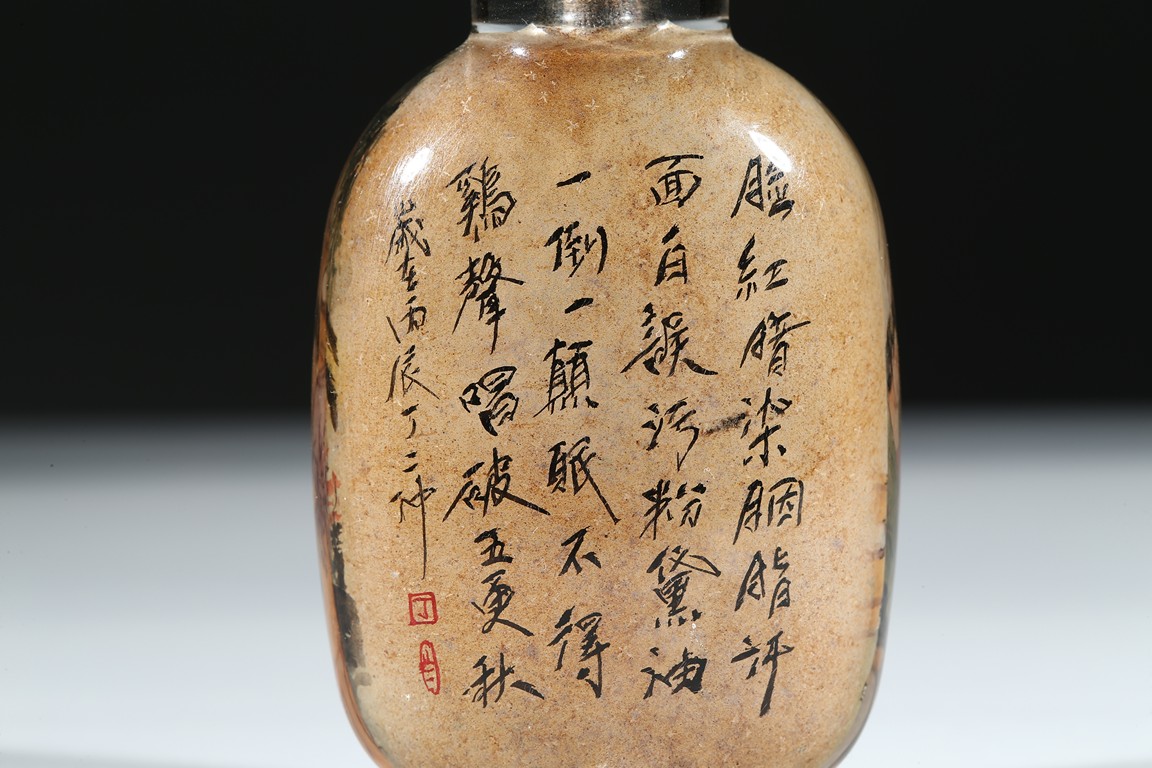 臉紅暗染胭脂評
面白誤污粉黛油
一倒一顛眠不得
鷄聲唱破五更秋
歲在丙辰丁二仲
丁